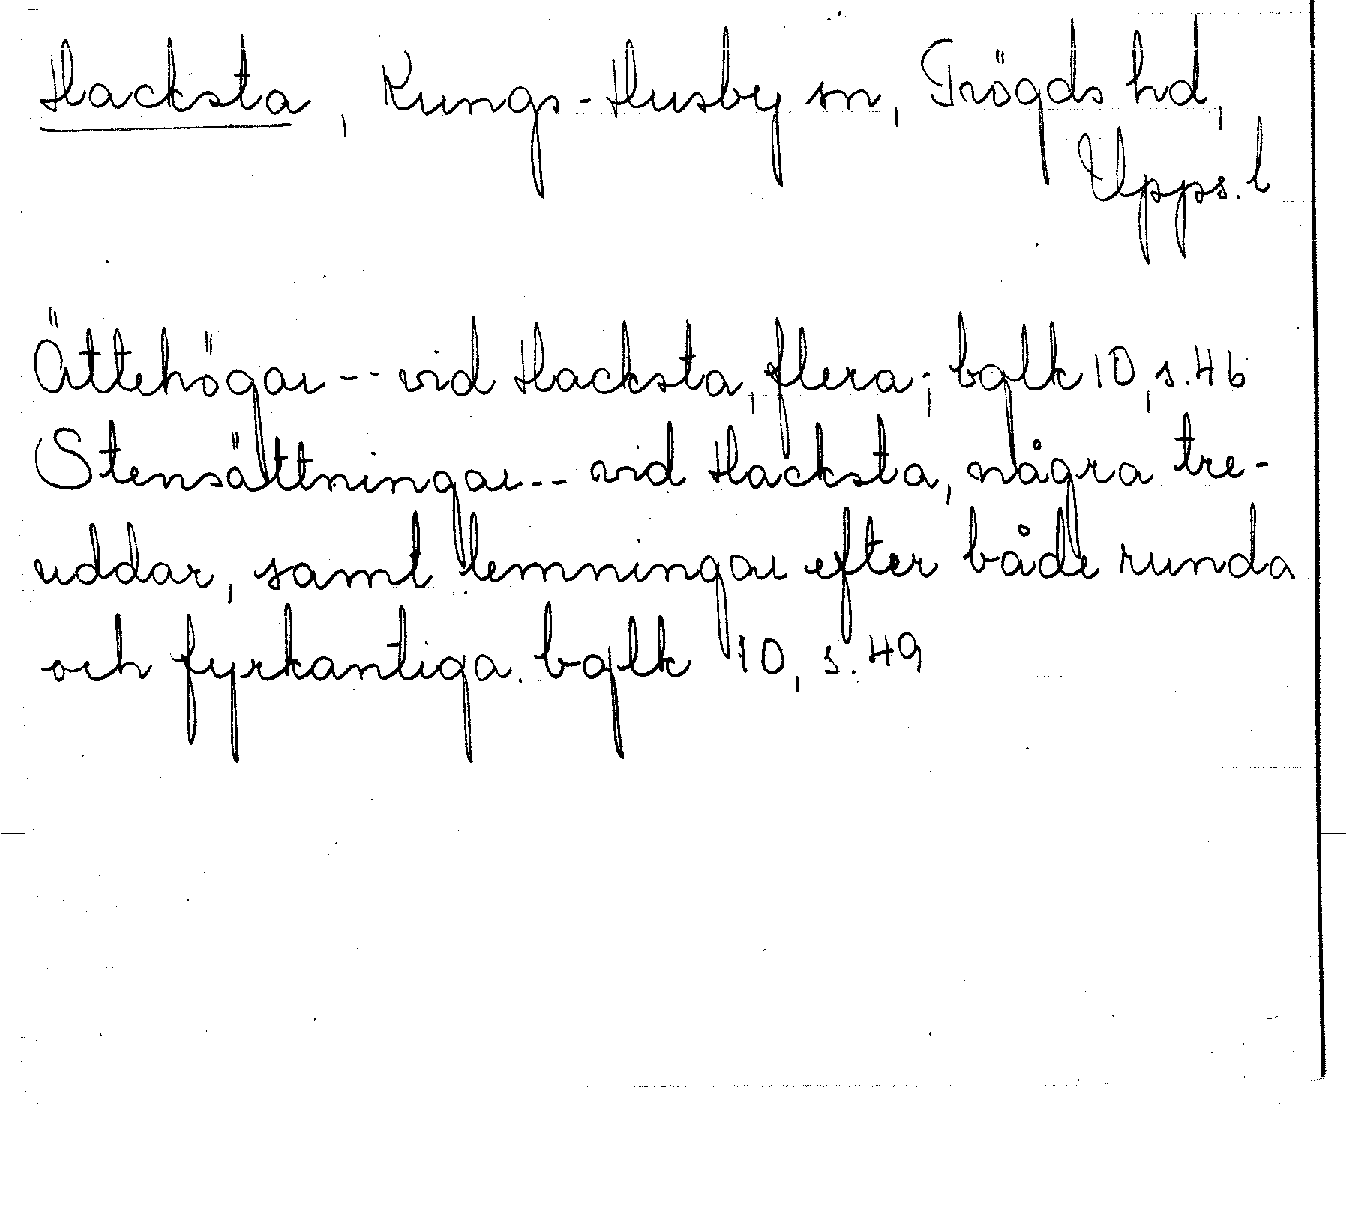 Hacksta, Kungs-Husby sn, Trögds hd,
Upps. l
Ättehögar -- vid Hacksta, flera; bglk 10, s. 46
Stensättningar -- vid Hacksta, några tre-
uddar, samt lemningar efter både runda
och fyrkantiga. bglk 10, s. 49